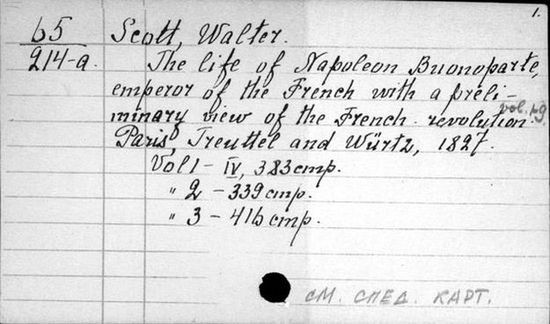 1.
65 Scott, Walter.
214-a. The life of Napoleon Buonoparte,
emperor of the French with a preli-
minary view of the French revolution.
Paris, Treuttel and Würtz, 1827.
Vol 1 - IV, 383 cmp.
" 2 - 339 cmp.
" 3 - 416 cmp.
см. след. карт.